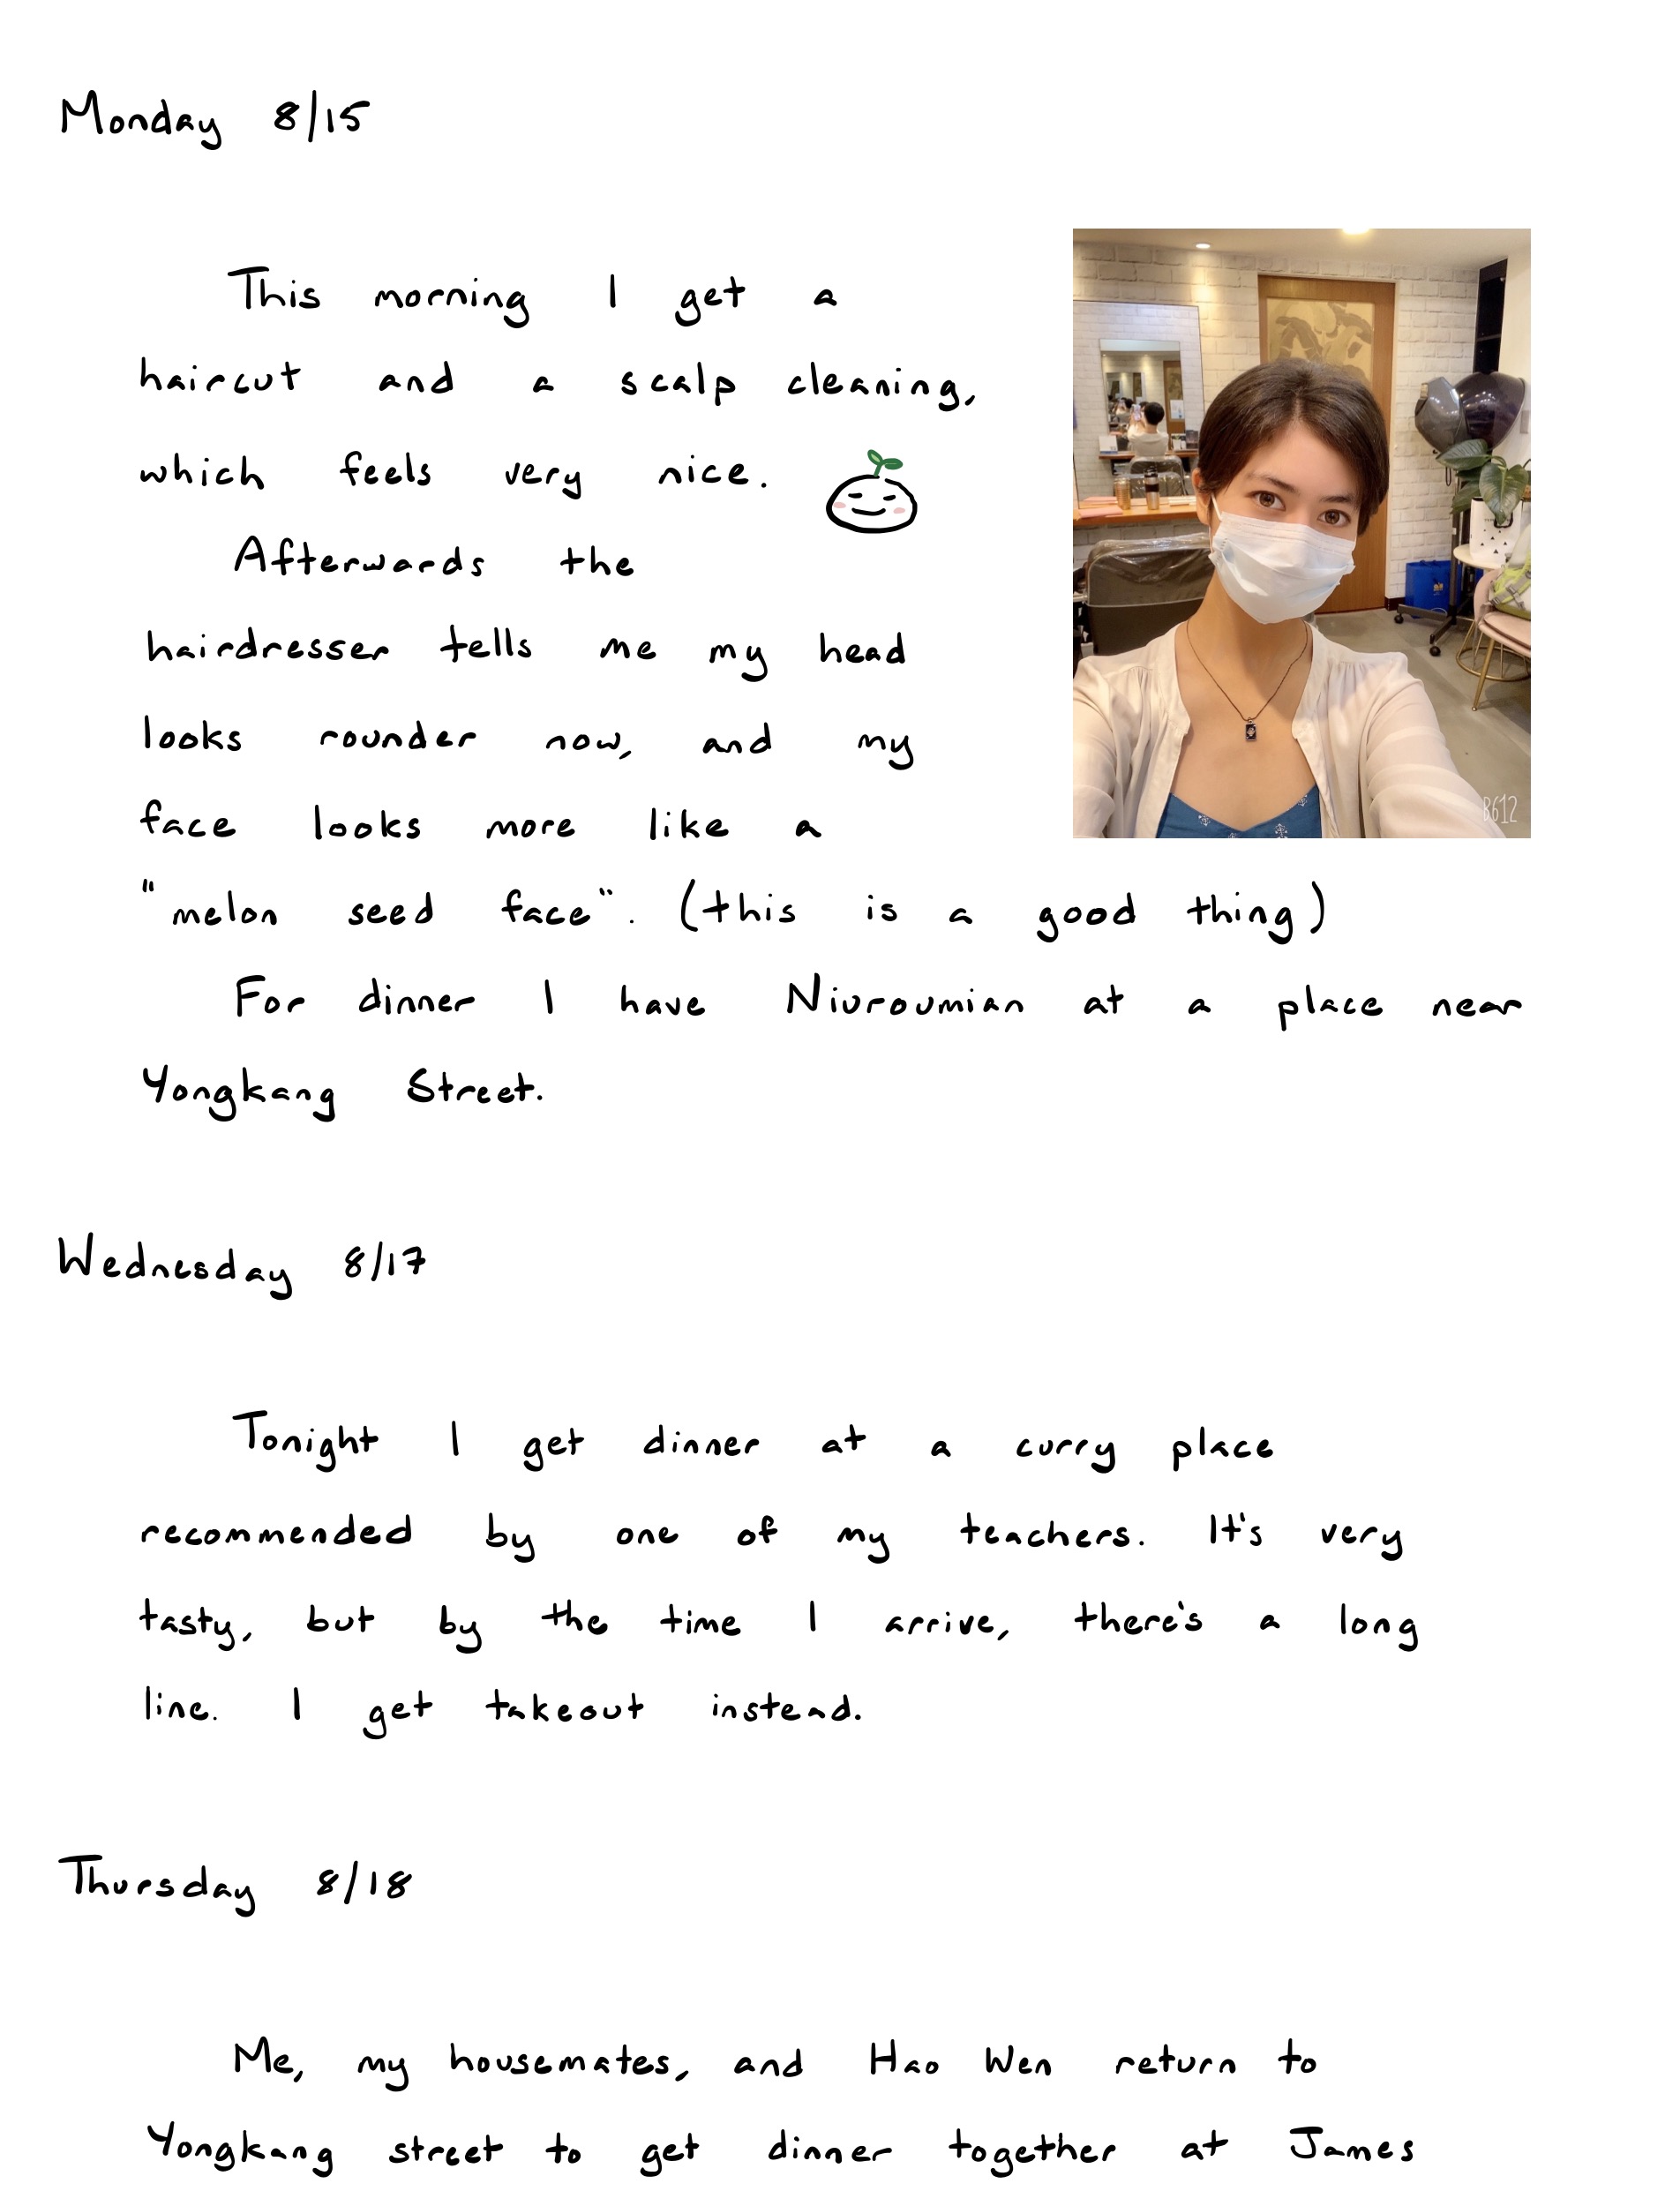 Monday 8/15
This morning I get a
haircut and a scalp cleaning,
which feels very nice.
Afterwards the
hairdresser tells me my head
looks rounder now, and my
face looks more like a
"melon seed face". (this is a good thing)
For dinner I have Niuroumian at a place near
Yongkang Street.
B612
Wednesday 8/17
Tonight I get dinner at a curry place
recommended by one of my teachers. It's very
tasty, but by the time I arrive, there's a long
line. I get takeout instead.
Thursday 8/18
Me, my housemates, and Hao Wen return to
Yongkang street to get dinner together at James